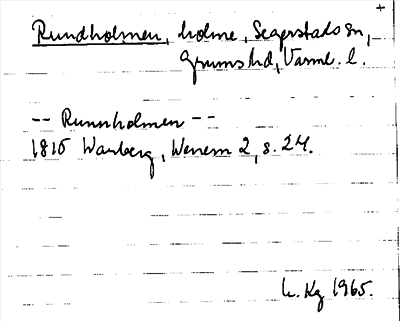 +
Rundholmen, holme, Segerstads sn,
Grums hd, Värml. l.
-- Runnholmen --
1815 Warberg, Wenern 2, s. 24.
L. Kg 1965.